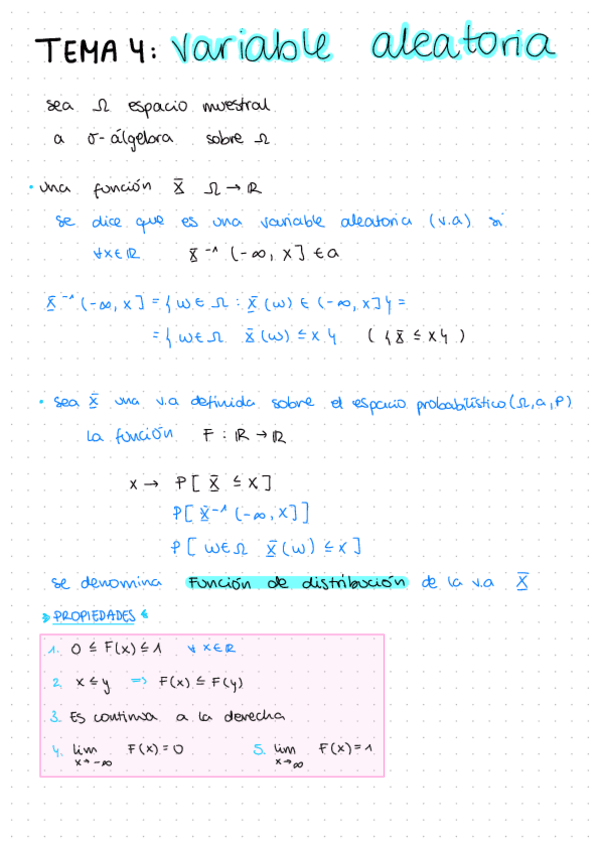 TEMA 4: variable aleatoria
sea Ω espacio muestral
a σ-álgebra sobre Ω
• una función X̄ Ω → ℝ
se dice que es una variable aleatoria (v.a) si
∀x∈ℝ X̄⁻¹ (-∞, x] ∈ a
X̄⁻¹ (-∞, x] = { w ∈ Ω : X̄ (w) ∈ (-∞, x] } =
= { w ∈ Ω X̄ (w) ≤ x } ( { X̄ ≤ x } )
• sea X̄ una v.a definida sobre el espacio probabilístico (Ω, a, P)
la función F : ℝ → ℝ
x → P [ X̄ ≤ x ]
P [ X̄⁻¹ (-∞, x] ]
P [ w ∈ Ω X̄ (w) ≤ x ]
se denomina Función de distribución de la v.a X̄
PROPIEDADES
1. 0 ≤ F(x) ≤ 1 ∀ x∈ℝ
2. x ≤ y => F(x) ≤ F(y)
3. Es continua a la derecha
4. lim F(x) = 0 5. lim F(x) = 1
x→-∞ x→∞